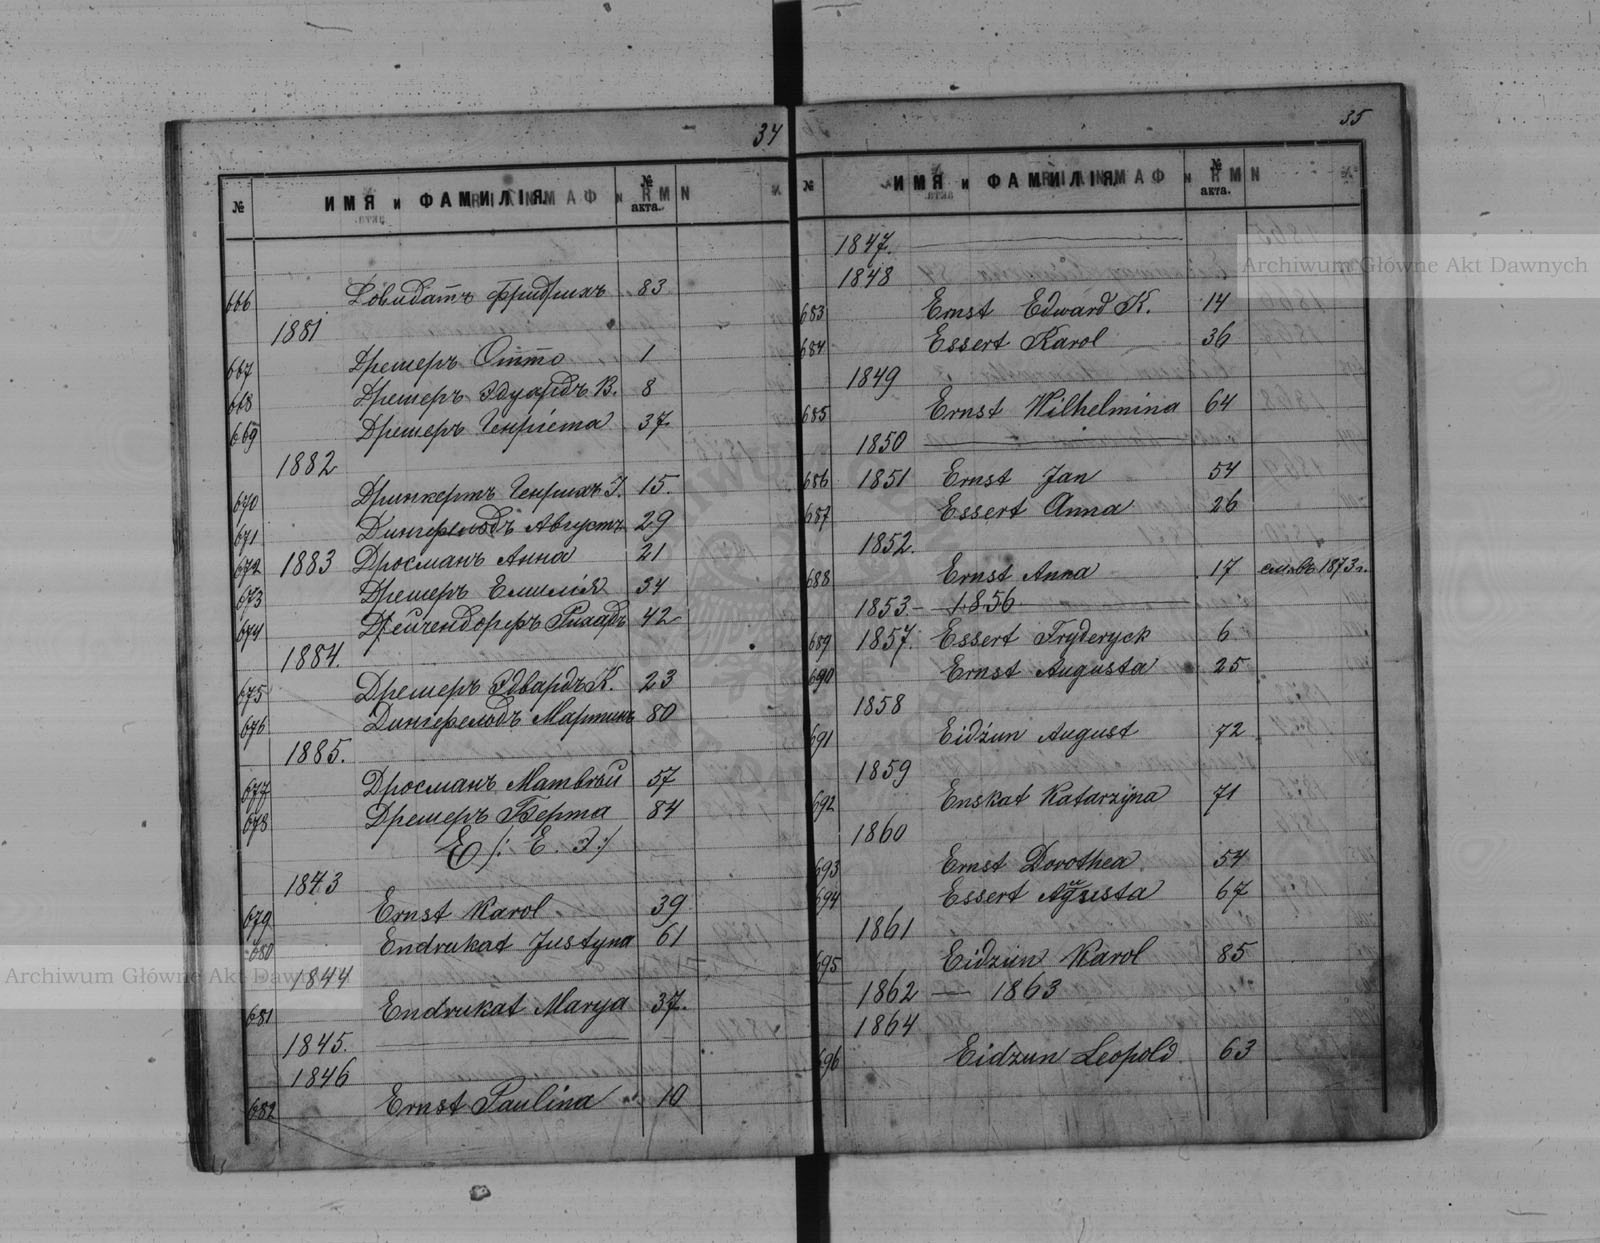 34
№ ИМЯ и ФАМИЛІЯ № акта.
666 Фридрихъ 83
1881
667 Дрешеръ Отто 1
668 Дрешеръ Эдуардъ В. 8
669 Дрешеръ Генріета 37
1882
670 Дринкертъ Генрихъ 15.
671 Дингфельдъ Августъ 29
672 1883 Дросманъ Анна 21
673 Дрешеръ Емилія 34
674 Дейчендорфъ Рихардъ 42
1884.
675 Дрешеръ Эдвардъ К. 23
676 Дингфельдъ Мартинъ 80
1885.
677 Дросманъ Матвѣй 57
678 Дрешеръ Берта 84
E /: Е. Э:/
1843
679 Ernst Karol 39
680 Endrukat Justyna 61
1844
681 Endrukat Marya 37.
1845.
1846
682 Ernst Paulina 10
35
№ ИМЯ и ФАМИЛІЯ № акта.
1847.
1848
683 Ernst Edward K. 14
684 Essert Karol 36
1849
685 Ernst Wilhelmina 64
1850
686 1851 Ernst Jan 54
687 Essert Anna 26
1852.
688 Ernst Anna 17 1873 г.
1853 - 1856
689 1857. Essert Fryderyck 6
690 Ernst Augusta 25
1858
691 Eidźun August 72
1859
692 Enskat Katarzyna 71
1860
693 Ernst Dorothea 54
694 Essert Augusta 67
1861
695 Eidzun Karol 85
1862 — 1863
1864
696 Eidzun Leopold 63
Archiwum Główne Akt Dawnych
Archiwum Główne Akt Dawnych